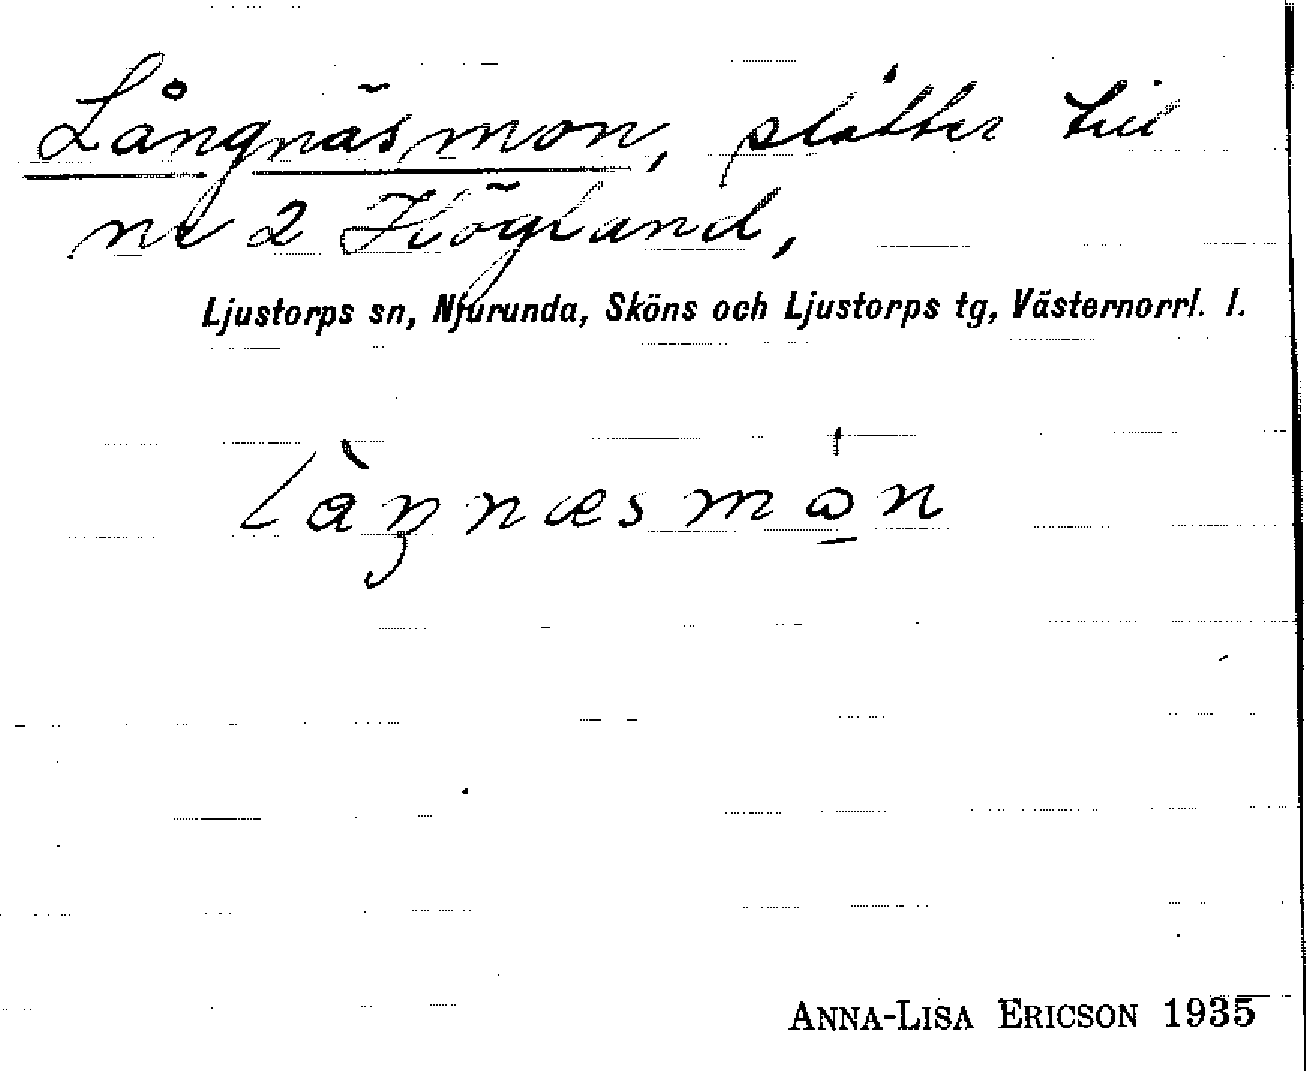 Långnäsmon, slåtter till
nr 2 Högland,
Ljustorps sn, Njurunda, Sköns och Ljustorps tg, Västernorrl. l.
làŋnæsmòn
ANNA-LISA ERICSON 1935